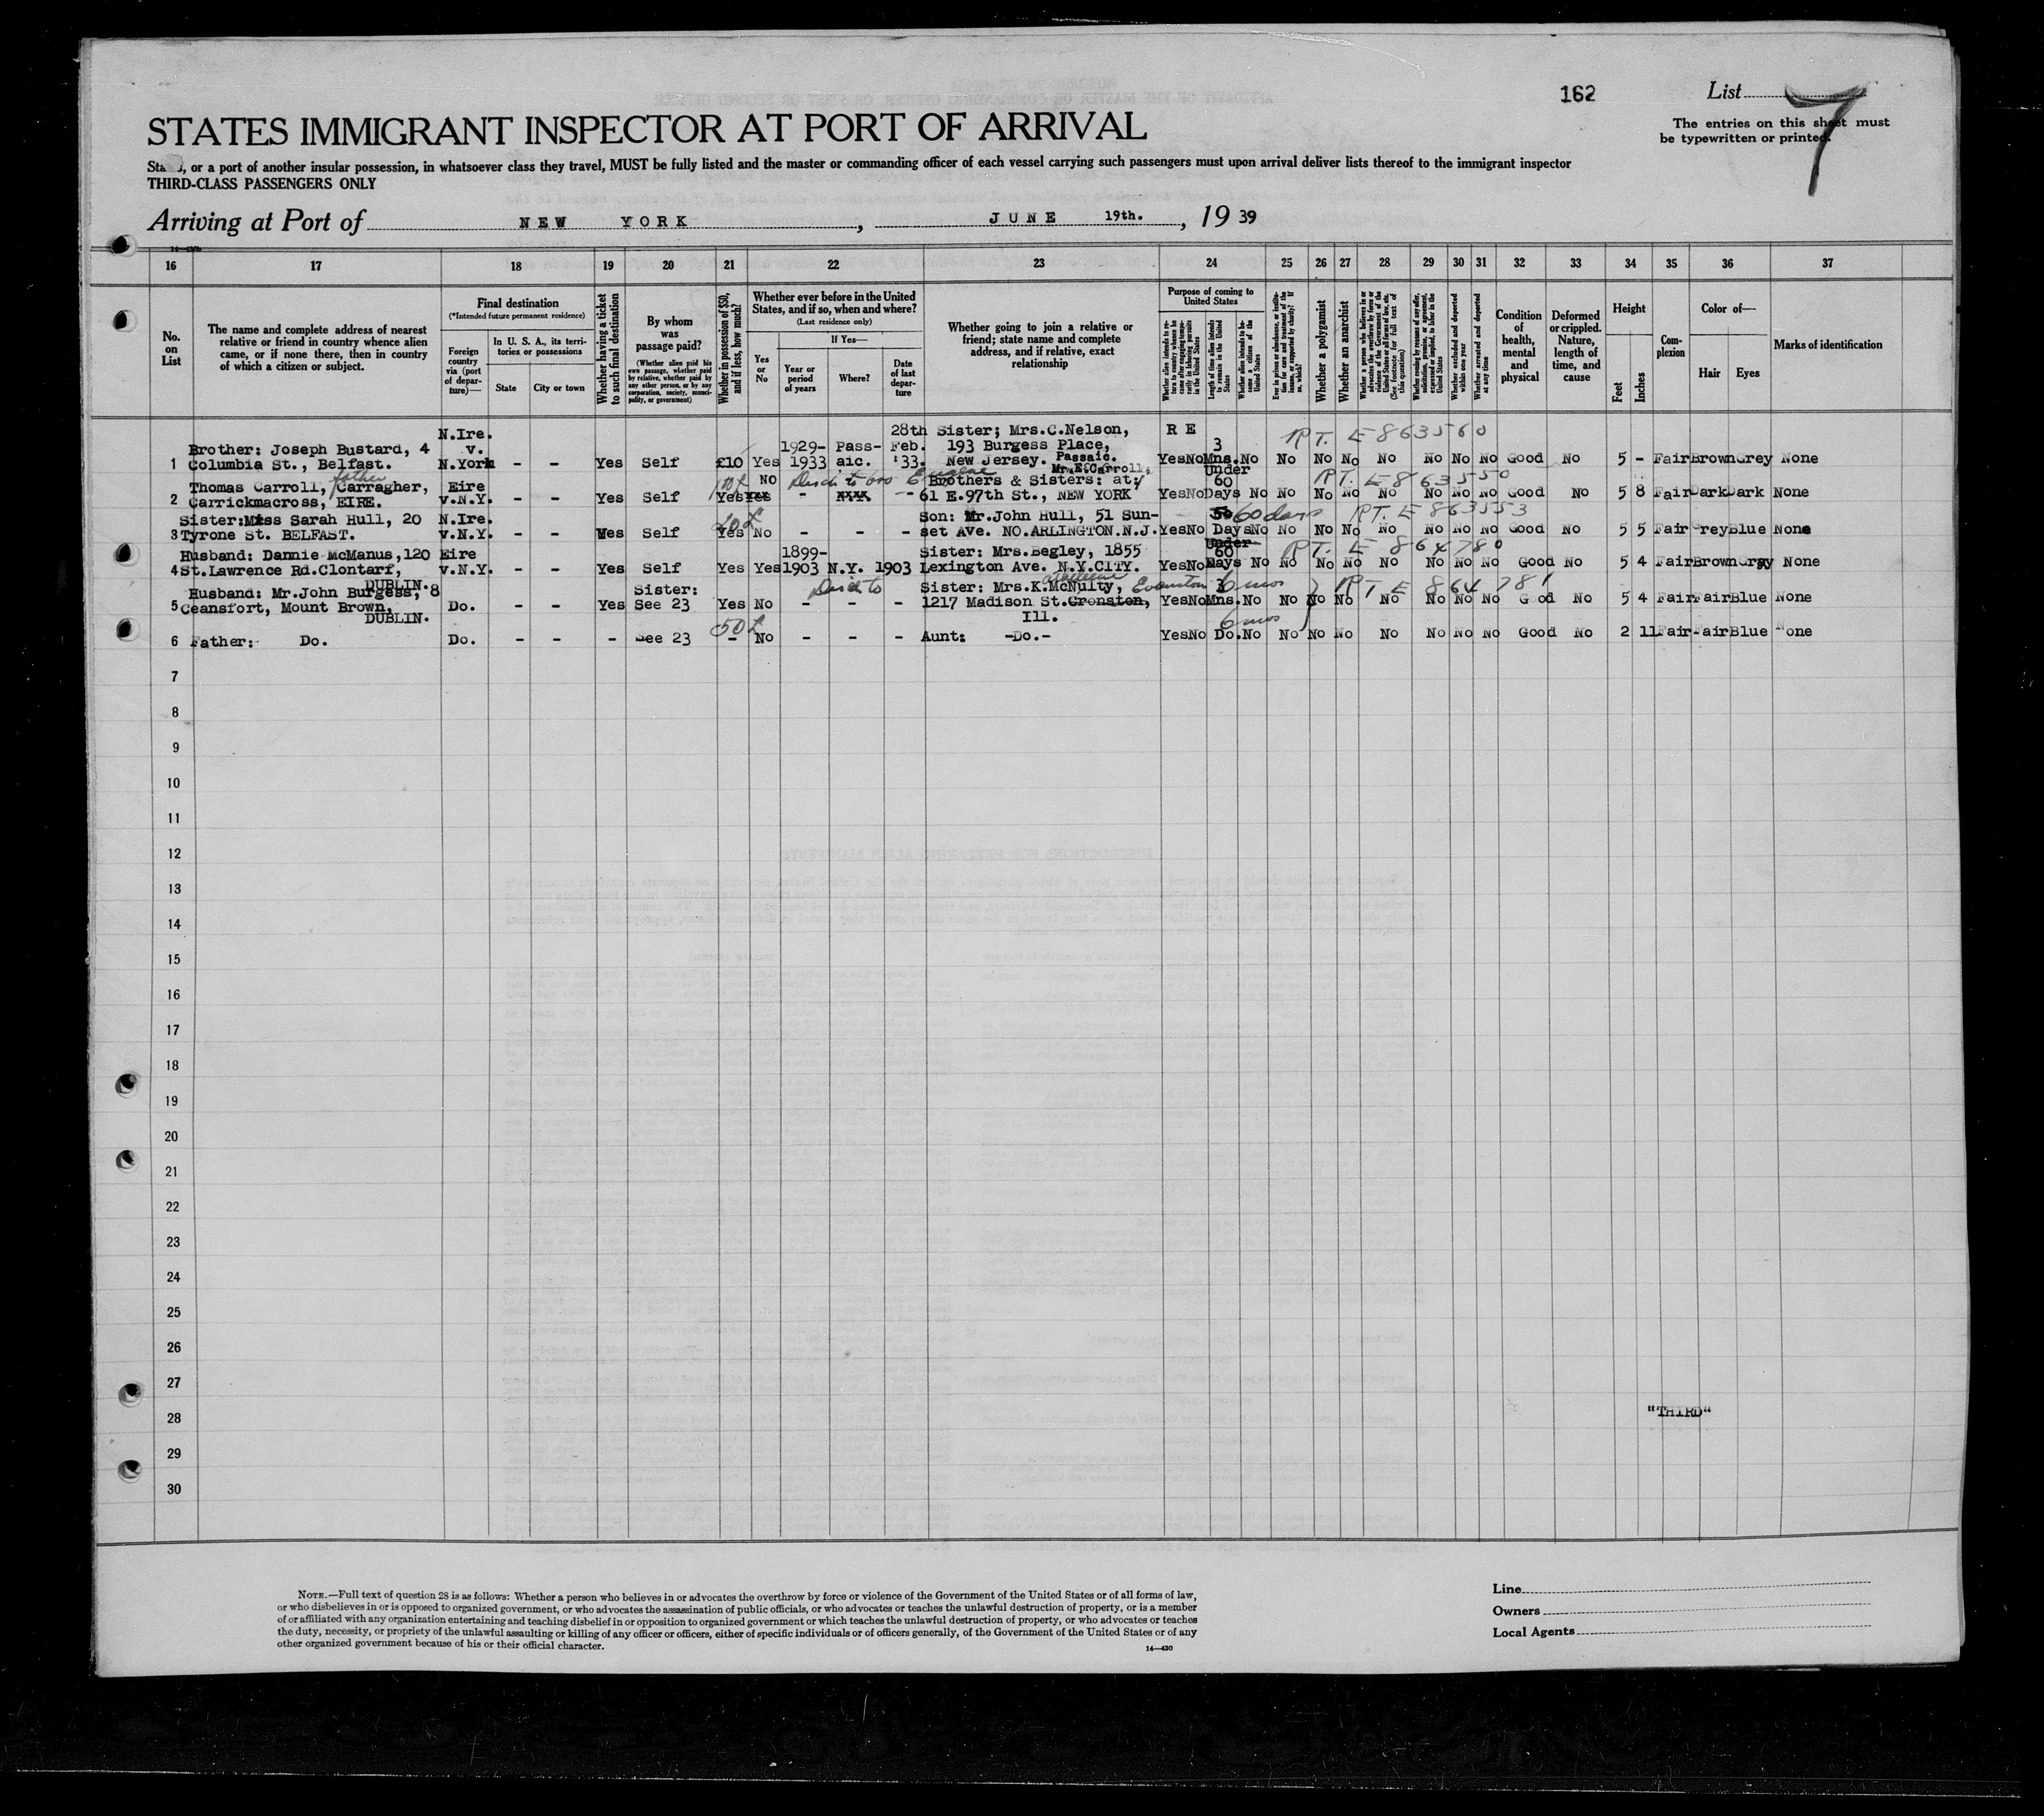 162
List 7
The entries on this sheet must
be typewritten or printed.
STATES IMMIGRANT INSPECTOR AT PORT OF ARRIVAL
or a port of another insular possession, in whatsoever class they travel, MUST be fully listed and the master or commanding officer of each vessel carrying such passengers must upon arrival deliver lists thereof to the immigrant inspector
THIRD-CLASS PASSENGERS ONLY
Arriving at Port of NEW YORK, JUNE 19th., 1939
16 17 18 19 20 21 22 23 24 25 26 27 28 29 30 31 32 33 34 35 36 37
No. on List
The name and complete address of nearest
relative or friend in country whence alien
came, or if none there, then in country
of which a citizen or subject.
Final destination
(*Intended future permanent residence)
Foreign country via (port of departure)—
In U. S. A., its territories or possessions
State
City or town
Whether having a ticket to such final destination
By whom was passage paid?
(Whether alien paid his own passage, whether paid by relative, whether paid by any other person, or by any corporation, society, municipality, or government)
Whether in possession of $50, and if less, how much?
Whether ever before in the United States, and if so, when and where?
(Last residence only)
Yes or No
If Yes—
Year or period of years
Where?
Date of last departure
Whether going to join a relative or
friend; state name and complete
address, and if relative, exact
relationship
Purpose of coming to United States
Whether alien intends to return to country whence he came after engaging temporarily in laboring pursuits in the United States
Length of time alien intends to remain in the United States
Whether alien intends to become a citizen of the United States
Whether a polygamist
Whether an anarchist
Whether excluded and deported within one year
Whether arrested and deported at any time
Condition of health, mental and physical
Deformed or crippled. Nature, length of time, and cause
Height
Feet
Inches
Complexion
Color of—
Hair
Eyes
Marks of identification
1 Brother: Joseph Bustard, 4
Columbia St., Belfast.
N.Ire. v. N.York - - Yes Self £10 Yes 1929-1933 Passaic. 28th Feb. '33.
Sister; Mrs.C.Nelson,
193 Burgess Place,
New Jersey. Passaic.
R E
Yes No 3 Mns. No No No No No No No No Good No 5 - Fair Brown Grey None
RT. E 863560
2 Thomas Carroll, father Carragher,
Carrickmacross, EIRE.
Eire v.N.Y. - - Yes Self Yes NO - -
Mr.E.Carroll, Eugene
Brothers & Sisters: at;
61 E.97th St., NEW YORK
Yes No Under 60 Days No No No No No No No No Good No 5 8 Fair Dark Dark None
RT. E 863550
3 Sister:Miss Sarah Hull, 20
Tyrone St. BELFAST.
N.Ire. v.N.Y. - - Yes Self 20£ Yes No - - -
Son: Mr.John Hull, 51 Sun-
set Ave. NO.ARLINGTON.N.J.
Yes No 60 days Days No No No No No No No No Good No 5 5 Fair Grey Blue None
RT. E 863553
4 Husband: Dannie McManus,120
St.Lawrence Rd.Clontarf,
DUBLIN.
Eire v.N.Y. - - Yes Self Yes Yes 1899-1903 N.Y. 1903
Sister: Mrs.Begley, 1855
Lexington Ave. N.Y.CITY.
Yes No Under 60 Days No No No No No No No No Good No 5 4 Fair Brown Grey None
RT. E 864780
5 Husband: Mr.John Burgess, 8
Ceansfort, Mount Brown,
DUBLIN.
Do. - - Yes Sister: See 23 Yes No - - -
Sister: Mrs.K.McNulty,
1217 Madison St.Cronston, Evanston
Ill.
Yes No 3 Mns. 6 mos No No No No No No No No Good No 5 4 Fair Fair Blue None
RT E 864781
6 Father: Do. Do. - - - See 23 50£ - No - - - Aunt: -Do.- Yes No Do. 6 mos No No No No No No No No Good No 2 11 Fair Fair Blue None
7
8
9
10
11
12
13
14
15
16
17
18
19
20
21
22
23
24
25
26
27
28
29
30
"THIRD"
NOTE.—Full text of question 28 is as follows: Whether a person who believes in or advocates the overthrow by force or violence of the Government of the United States or of all forms of law,
or who disbelieves in or is opposed to organized government, or who advocates the assassination of public officials, or who advocates or teaches the unlawful destruction of property, or is a member
of or affiliated with any organization entertaining and teaching disbelief in or opposition to organized government or which teaches the unlawful destruction of property, or who advocates or teaches
the duty, necessity, or propriety of the unlawful assaulting or killing of any officer or officers, either of specific individuals or of officers generally, of the Government of the United States or of any
other organized government because of his or their official character.
14—430
Line
Owners
Local Agents